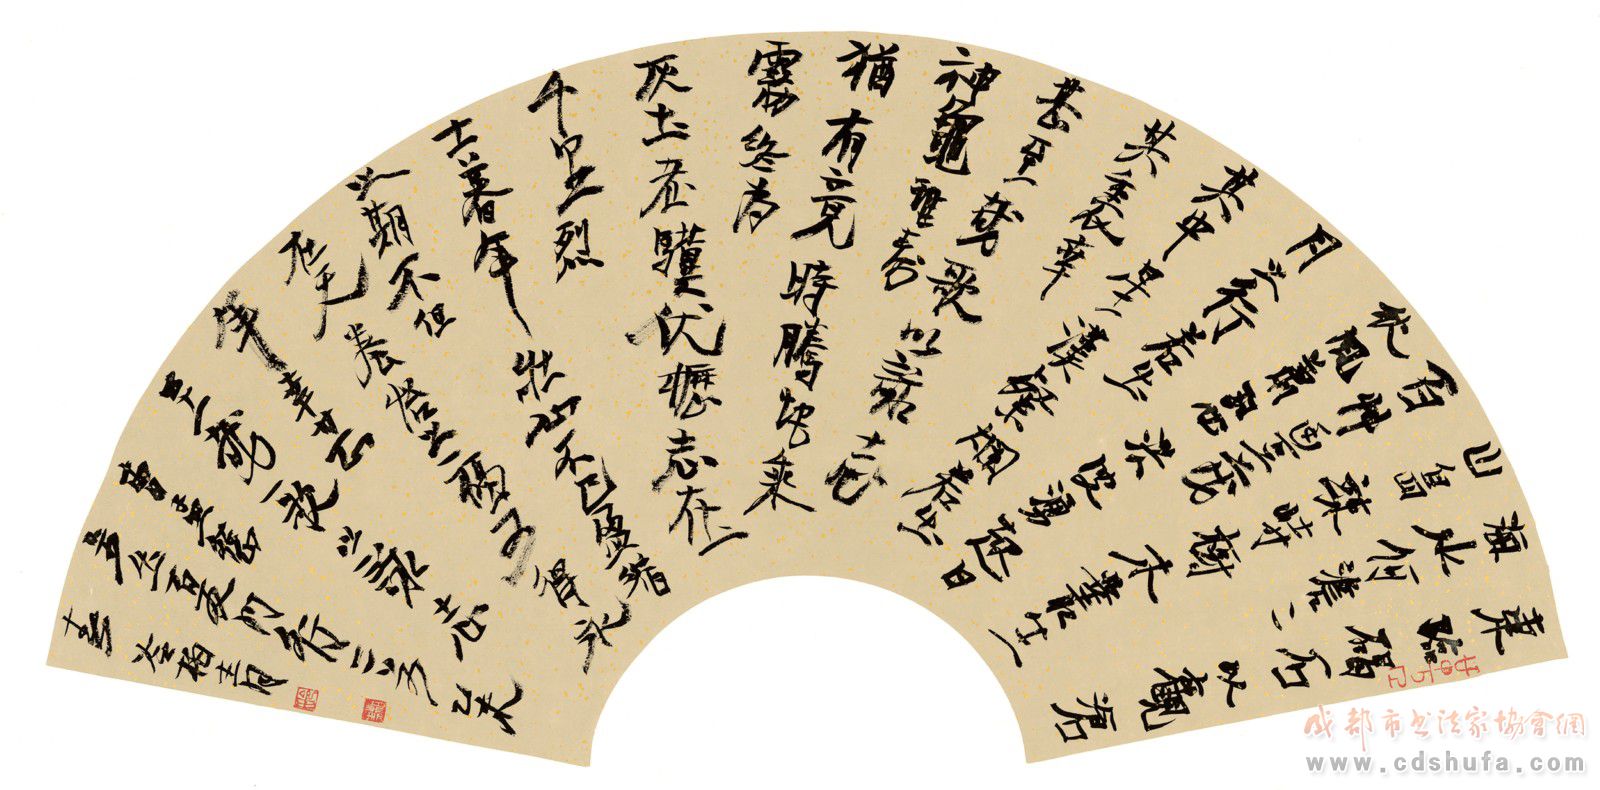 東臨碣石以觀滄
海水何澹澹
山島竦峙樹木叢生
百草豐茂
秋風蕭瑟洪波湧起日
月之行若出
其中星漢燦爛若出
其裏幸
甚至哉歌以詠志
神龜雖壽
猶有竟時騰蛇乘
霧終為
灰土老驥伏櫪志在
千里烈
士暮年壯心不已盈縮
之期不但
在天養怡之福可得永
年幸甚
至哉歌以詠志
曹孟德
步出夏門行二首
成都市书法家协会网
www.cdshufa.com